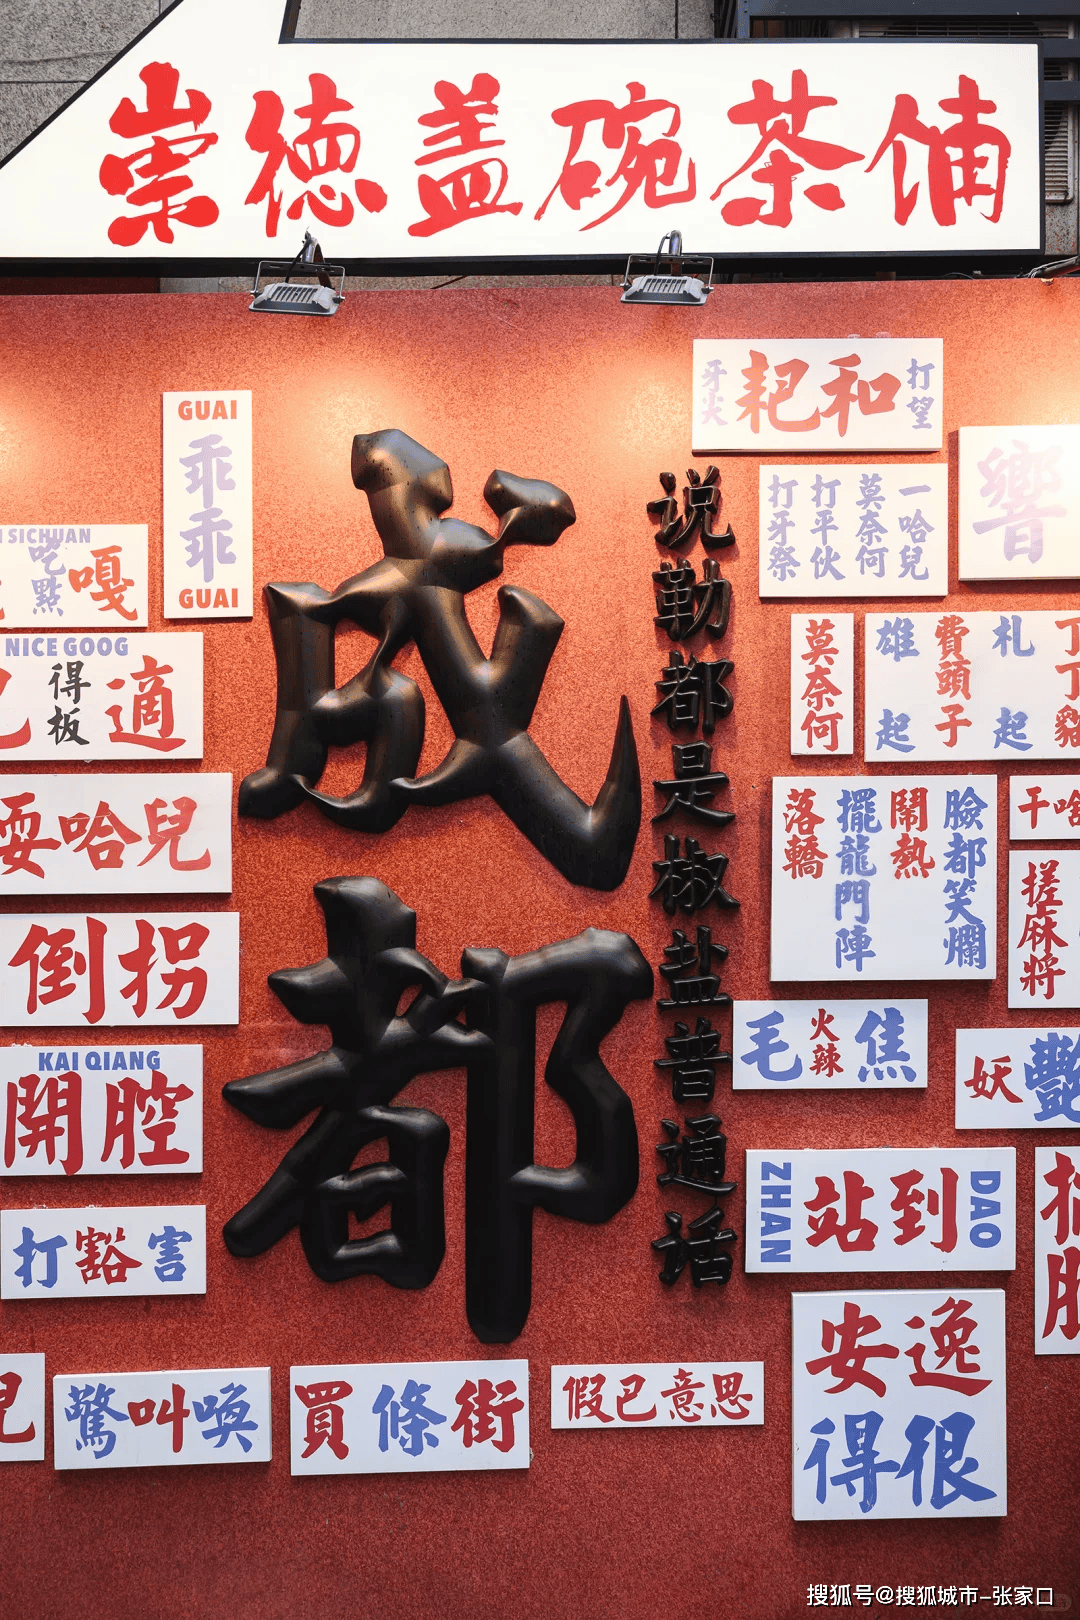 崇德盖碗茶铺
GUAI
乖乖
GUAI
SICHUAN
吃點
嘎
NICE GOOG
得板
適
耍哈兒
倒拐
KAI QIANG
開腔
打豁害
兒
驚叫喚
買條街
假巴意思
成都
说勒都是椒盐普通话
牙火
耙和
打望
打牙祭
打平伙
莫奈何
一哈兒
響
莫奈何
雄起
費頭子
札起
丁丁雞
落轎
擺龍門陣
鬧熱
臉都笑爛
干啥
搓麻將
毛火辣焦
妖艷
ZHAN
站到
DAO
安逸
得很
搜狐号@搜狐城市-张家口